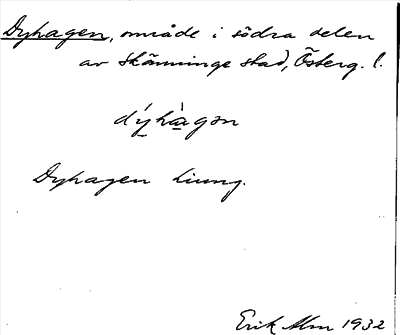 Dyhagen, område i södra delen
av Skänninge stad, Österg. l.
dýhàgən
Dyhagen Ljung.
Erik Alm 1932